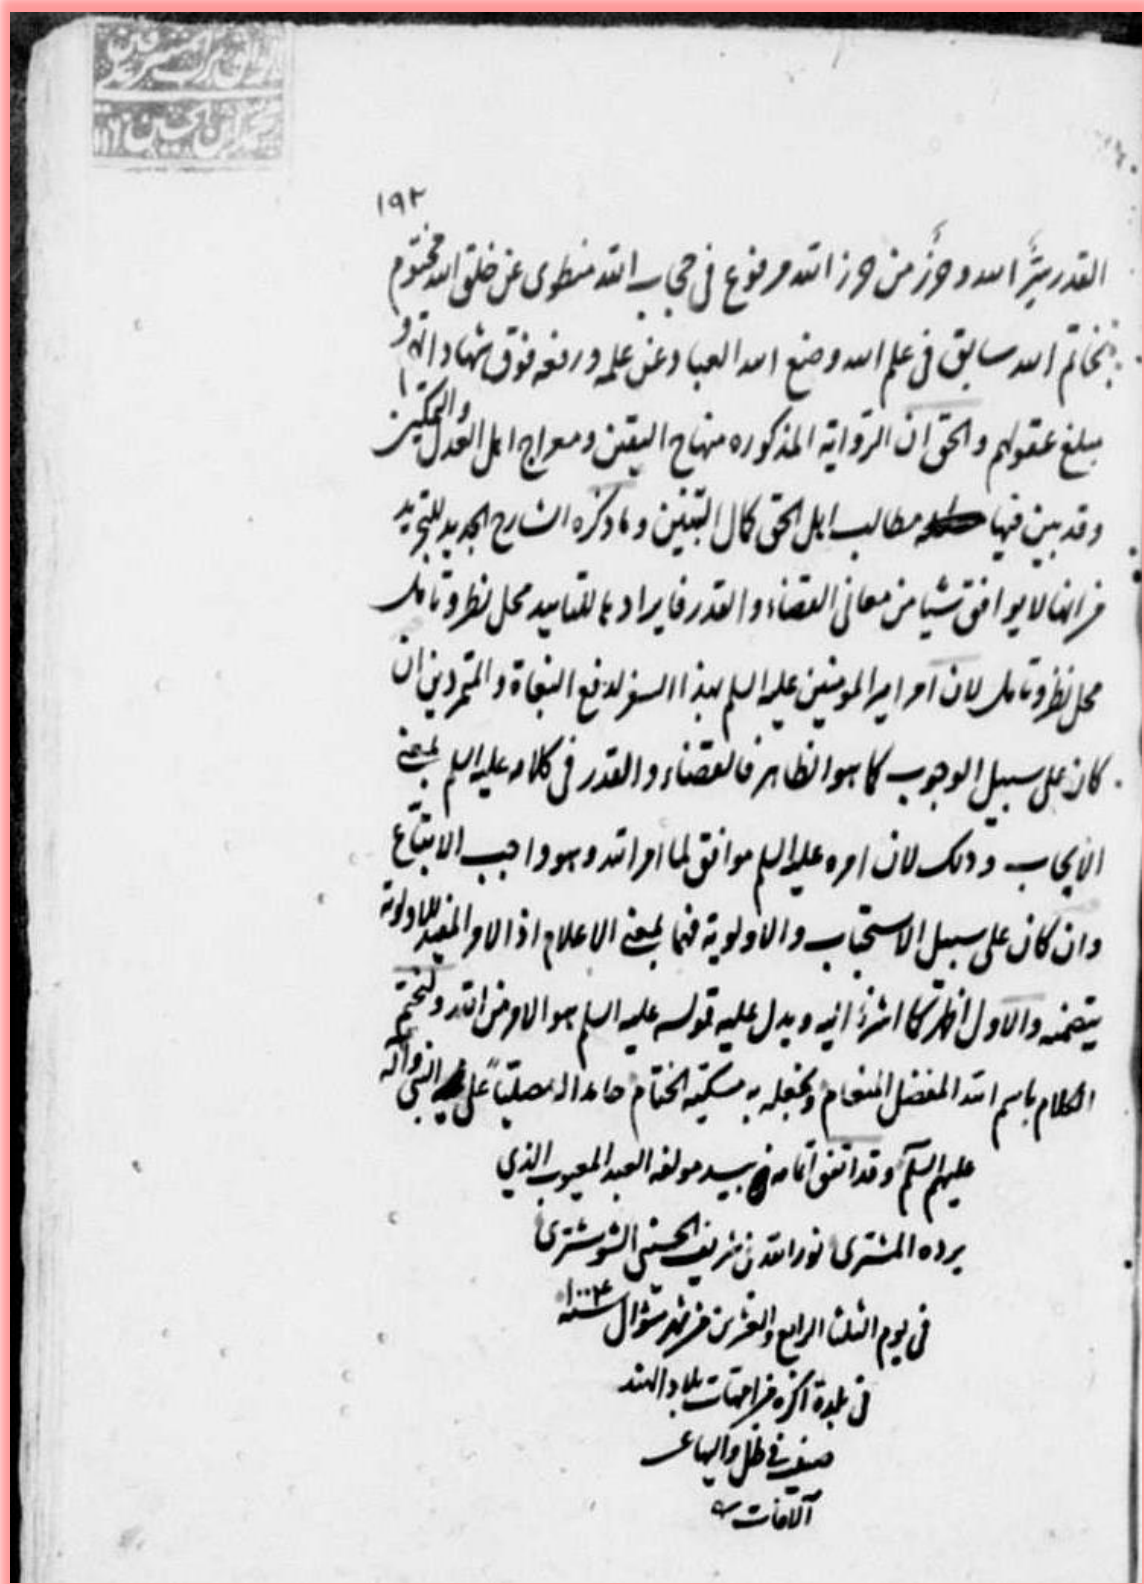 ١٩٢
القدر سرّ الله وحرز من حرز الله مرفوع فى حجاب الله منطوى عن خلق الله مختوم
بخاتم الله سابق فى علم الله وضع الله العباد عن علمه ورفعه فوق شهاداتهم و
مبلغ عقولهم والحق ان الرواية المذكوره منهاج اليقين ومعراج اهل العدل والتمكين
وقد بين فيها مطالب اهل الحق كمال التبيين وما ذكره الشارح الجديد للتجريد
من انها لا يوافق شيئا من معانى القضاء والقدر فايرادها للتاييد محل نظر وتامل
محل نظر وتامل لان امر امير المومنين عليه السلم بهذا السفر لدفع البغاة والمتمردين ان
كان على سبيل الوجوب كما هو الظاهر فالقضاء والقدر فى كلامه عليه السلم بمعنى
الايجاب وذلك لان امره عليه السلم موافق لما امر الله وهو واجب الاتباع
وان كان على سبيل الاستحباب والاولوية فهما بمعنى الاعلام اذ الامر المفيد للاولوية
يتضمنه والاول اظهر كما اشرنا اليه ويدل عليه قوله عليه السلم هو الامر من الله ولنختم
الكلام باسم الله المفضل المنعام ونجعله به مسكية الختام حامدا له مصليّاً على النبى وآله
عليهم السلم وقد اتفق اتمامه بيد مولفه العبد المعيوب الذي
يرده المشترى نور الله بن شريف الحسينى الشوشترى
فى يوم الثلثا الرابع والعشرين من شهر شوال سنه ١٠٠٤
فى بلدة اكره من امهات بلاد الهند
صينت فى ظل واليها عن
آلافات